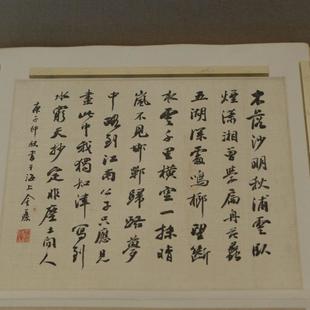 木落沙明秋浦雲臥
煙瀟湘曾學扁舟范蠡
五湖深處鳴榔望斷
水雲千里橫空一抹晴
嵐不見邯鄲歸路夢
中略到江南公子只應見
畫此中我獨知津寫到
水窮天杪定非塵土間人
庚子仲秋書于海上金